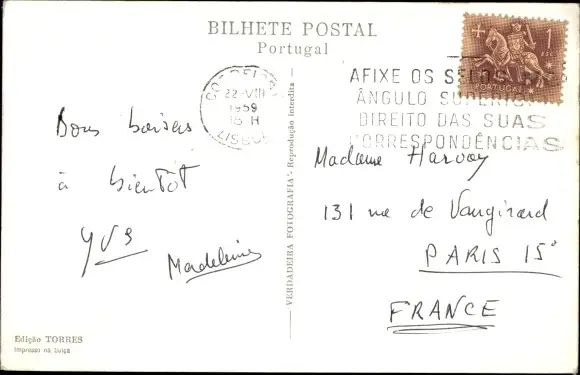 BILHETE POSTAL
Portugal
1
PORTUGAL
22-VIII
1959
15 H
LISBOA
AFIXE OS SELOS NO
ÂNGULO SUPERIOR
DIREITO DAS SUAS
CORRESPONDÊNCIAS
Bons baisers
à bientôt
YVES
Madeleine
VERDADEIRA FOTOGRAFIA - Reprodução interdita
Madame Harvoy
131 rue de Vaugirard
PARIS 15°
FRANCE
Edição TORRES
Impresso na Suíça